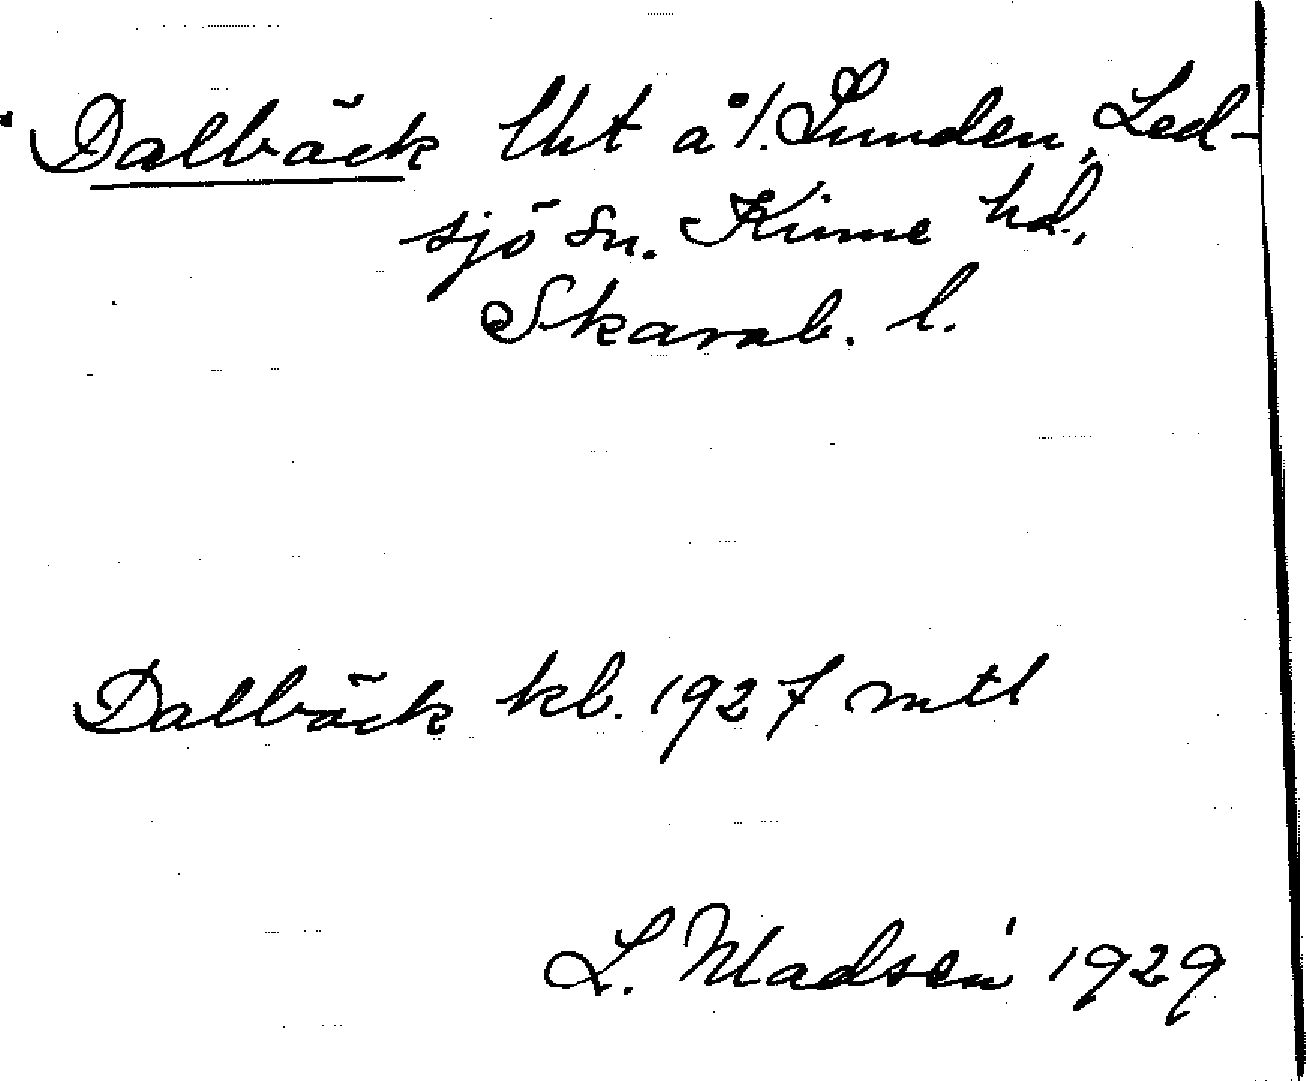 Dalbäck lht å /. Sunden, Led-
sjö sn. Kinne hd.,
Skarab. l.
Dalbäck kb. 1927 mtl
L. Madsén 1929